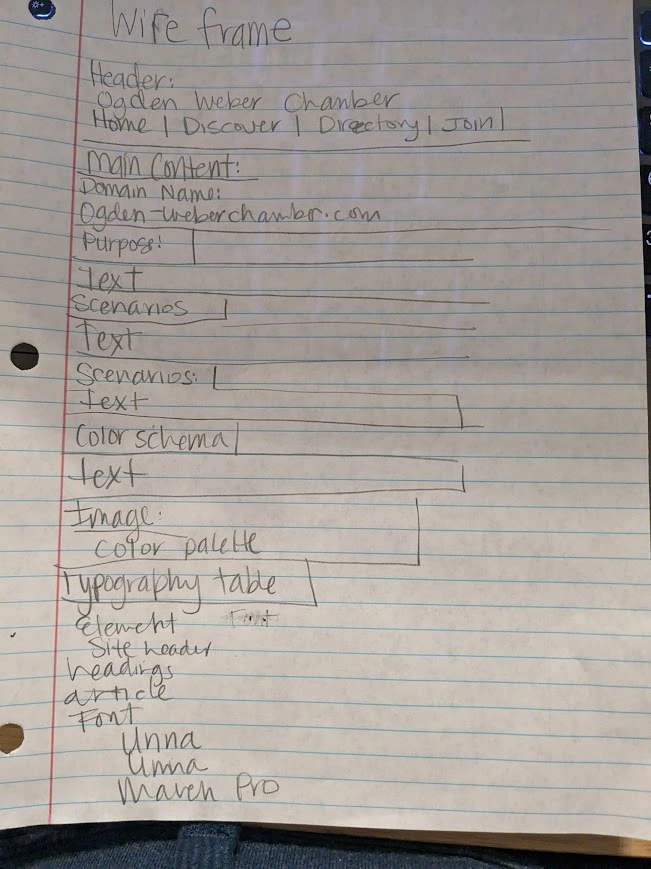 Wife frame
Header:
Ogden Weber Chamber
Home | Discover | Directory | Join |
Main Content:
Domain Name:
Ogden-weberchamber.com
Purpose:
Text
Scenarios
Text
Scenarios:
Text
Color schema
Text
Image:
color palette
Typography table
Element Font
Site header
headings
article
Font
Unna
Unna
Maven Pro